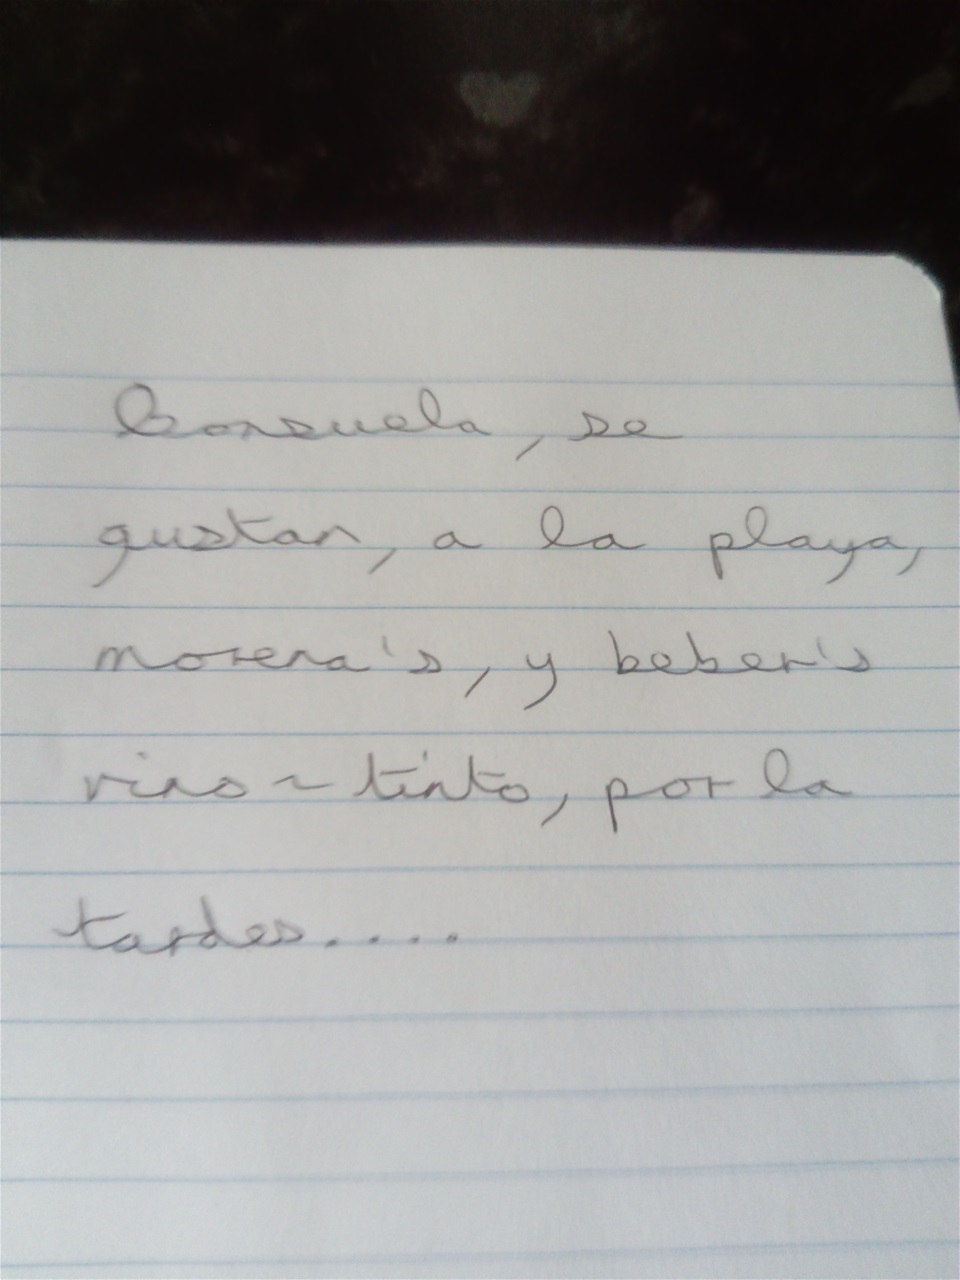 Consuela, se
gustan, a la playa,
morena's, y beber's
vino ~ tinto, por la
tardes....